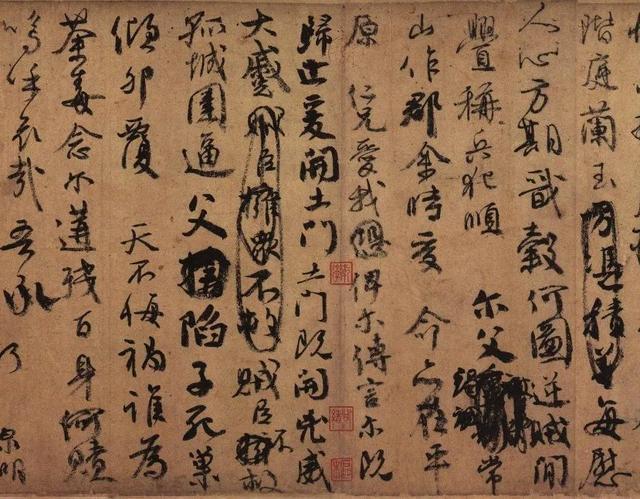 階庭蘭玉方憑積善每慰
人心方期戩穀何圖逆賊閒
釁稱兵犯順爾父常
山作郡余時受命亦在平
原仁兄愛我恐俾爾傳言爾既
歸止爰開土門土門既開凶威
大蹙賊臣擁眾不救賊臣不救
孤城圍逼父陷子死巢
傾卵覆天不悔禍誰為
荼毒念爾遘殘百身何贖
嗚呼哀哉吾承
乃泉明